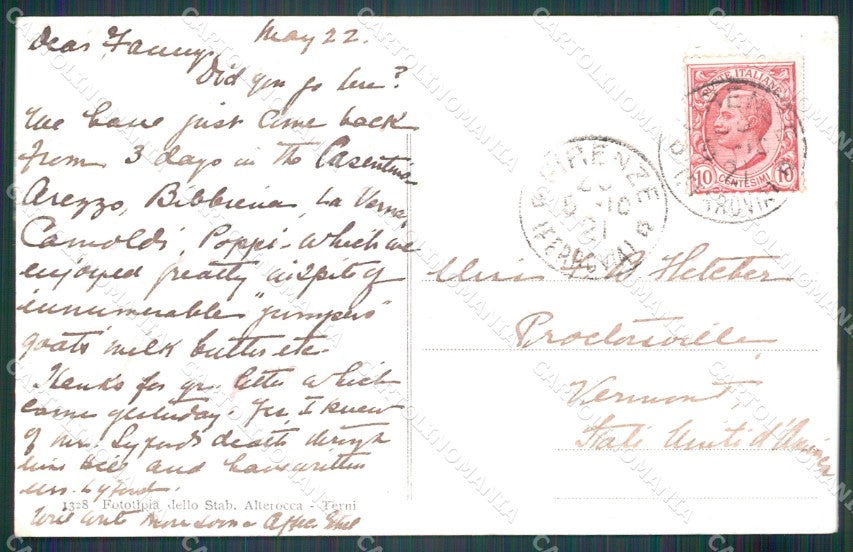 May 22.
Dear Fanny,
Did you go here?
We have just come back
from 3 days in the Casentino
Arezzo, Bibbiena, La Verna,
Camoldi, Poppi - which we
enjoyed greatly inspite of
innumerable "jumpers"
goats milk butter etc.
Thanks for yr. letter which
came yesterday. Yes, I knew
of Mr. Lyford's death through
Miss and have written
Mrs. Lyford.
1328 Fototipia dello Stab. Alterocca - Terni
Will write more soon - Affec
POSTE ITALIANE
10 CENTESIMI 10
FIRENZE
(FERROVIA)
FERROVIA
Miss Fletcher
Proctorsville
Vermont
Stati Uniti d'America
CARTOLINOMANIA